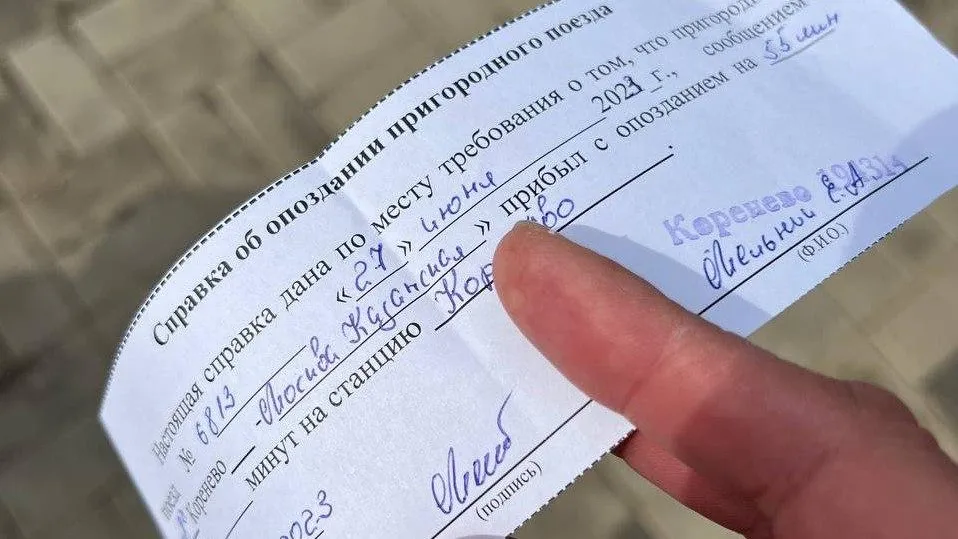 Справка об опоздании пригородного поезда
Настоящая справка дана по месту требования о том, что пригородн
поезд № 6813 « 27 » июня 2023 г., сообщением
Коренево - Москва Казанская » прибыл с опозданием на 55 мин
минут на станцию Кор во .
Коренево
Мельник Е.А.
(подпись)
(Ф.И.О.)
2023